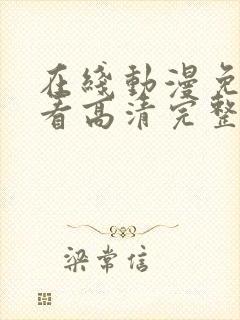 在綫動漫免
看高清完整
梁常信